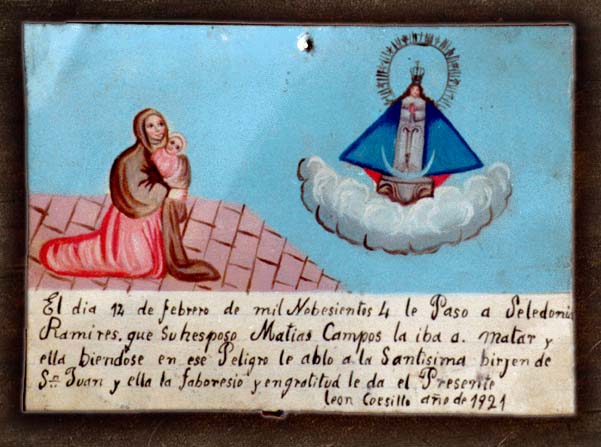 El dia 14 de febrero de mil Nobesientos 4 le Paso a Seledonia
Ramires. que su hesposo Matias Campos la iba a. matar y
ella biendose en ese Peligro le ablo a la Santisima birjen de
Sn Juan y ella la faboresio y en gratitud le da el Presente
leon Coesillo año de 1921